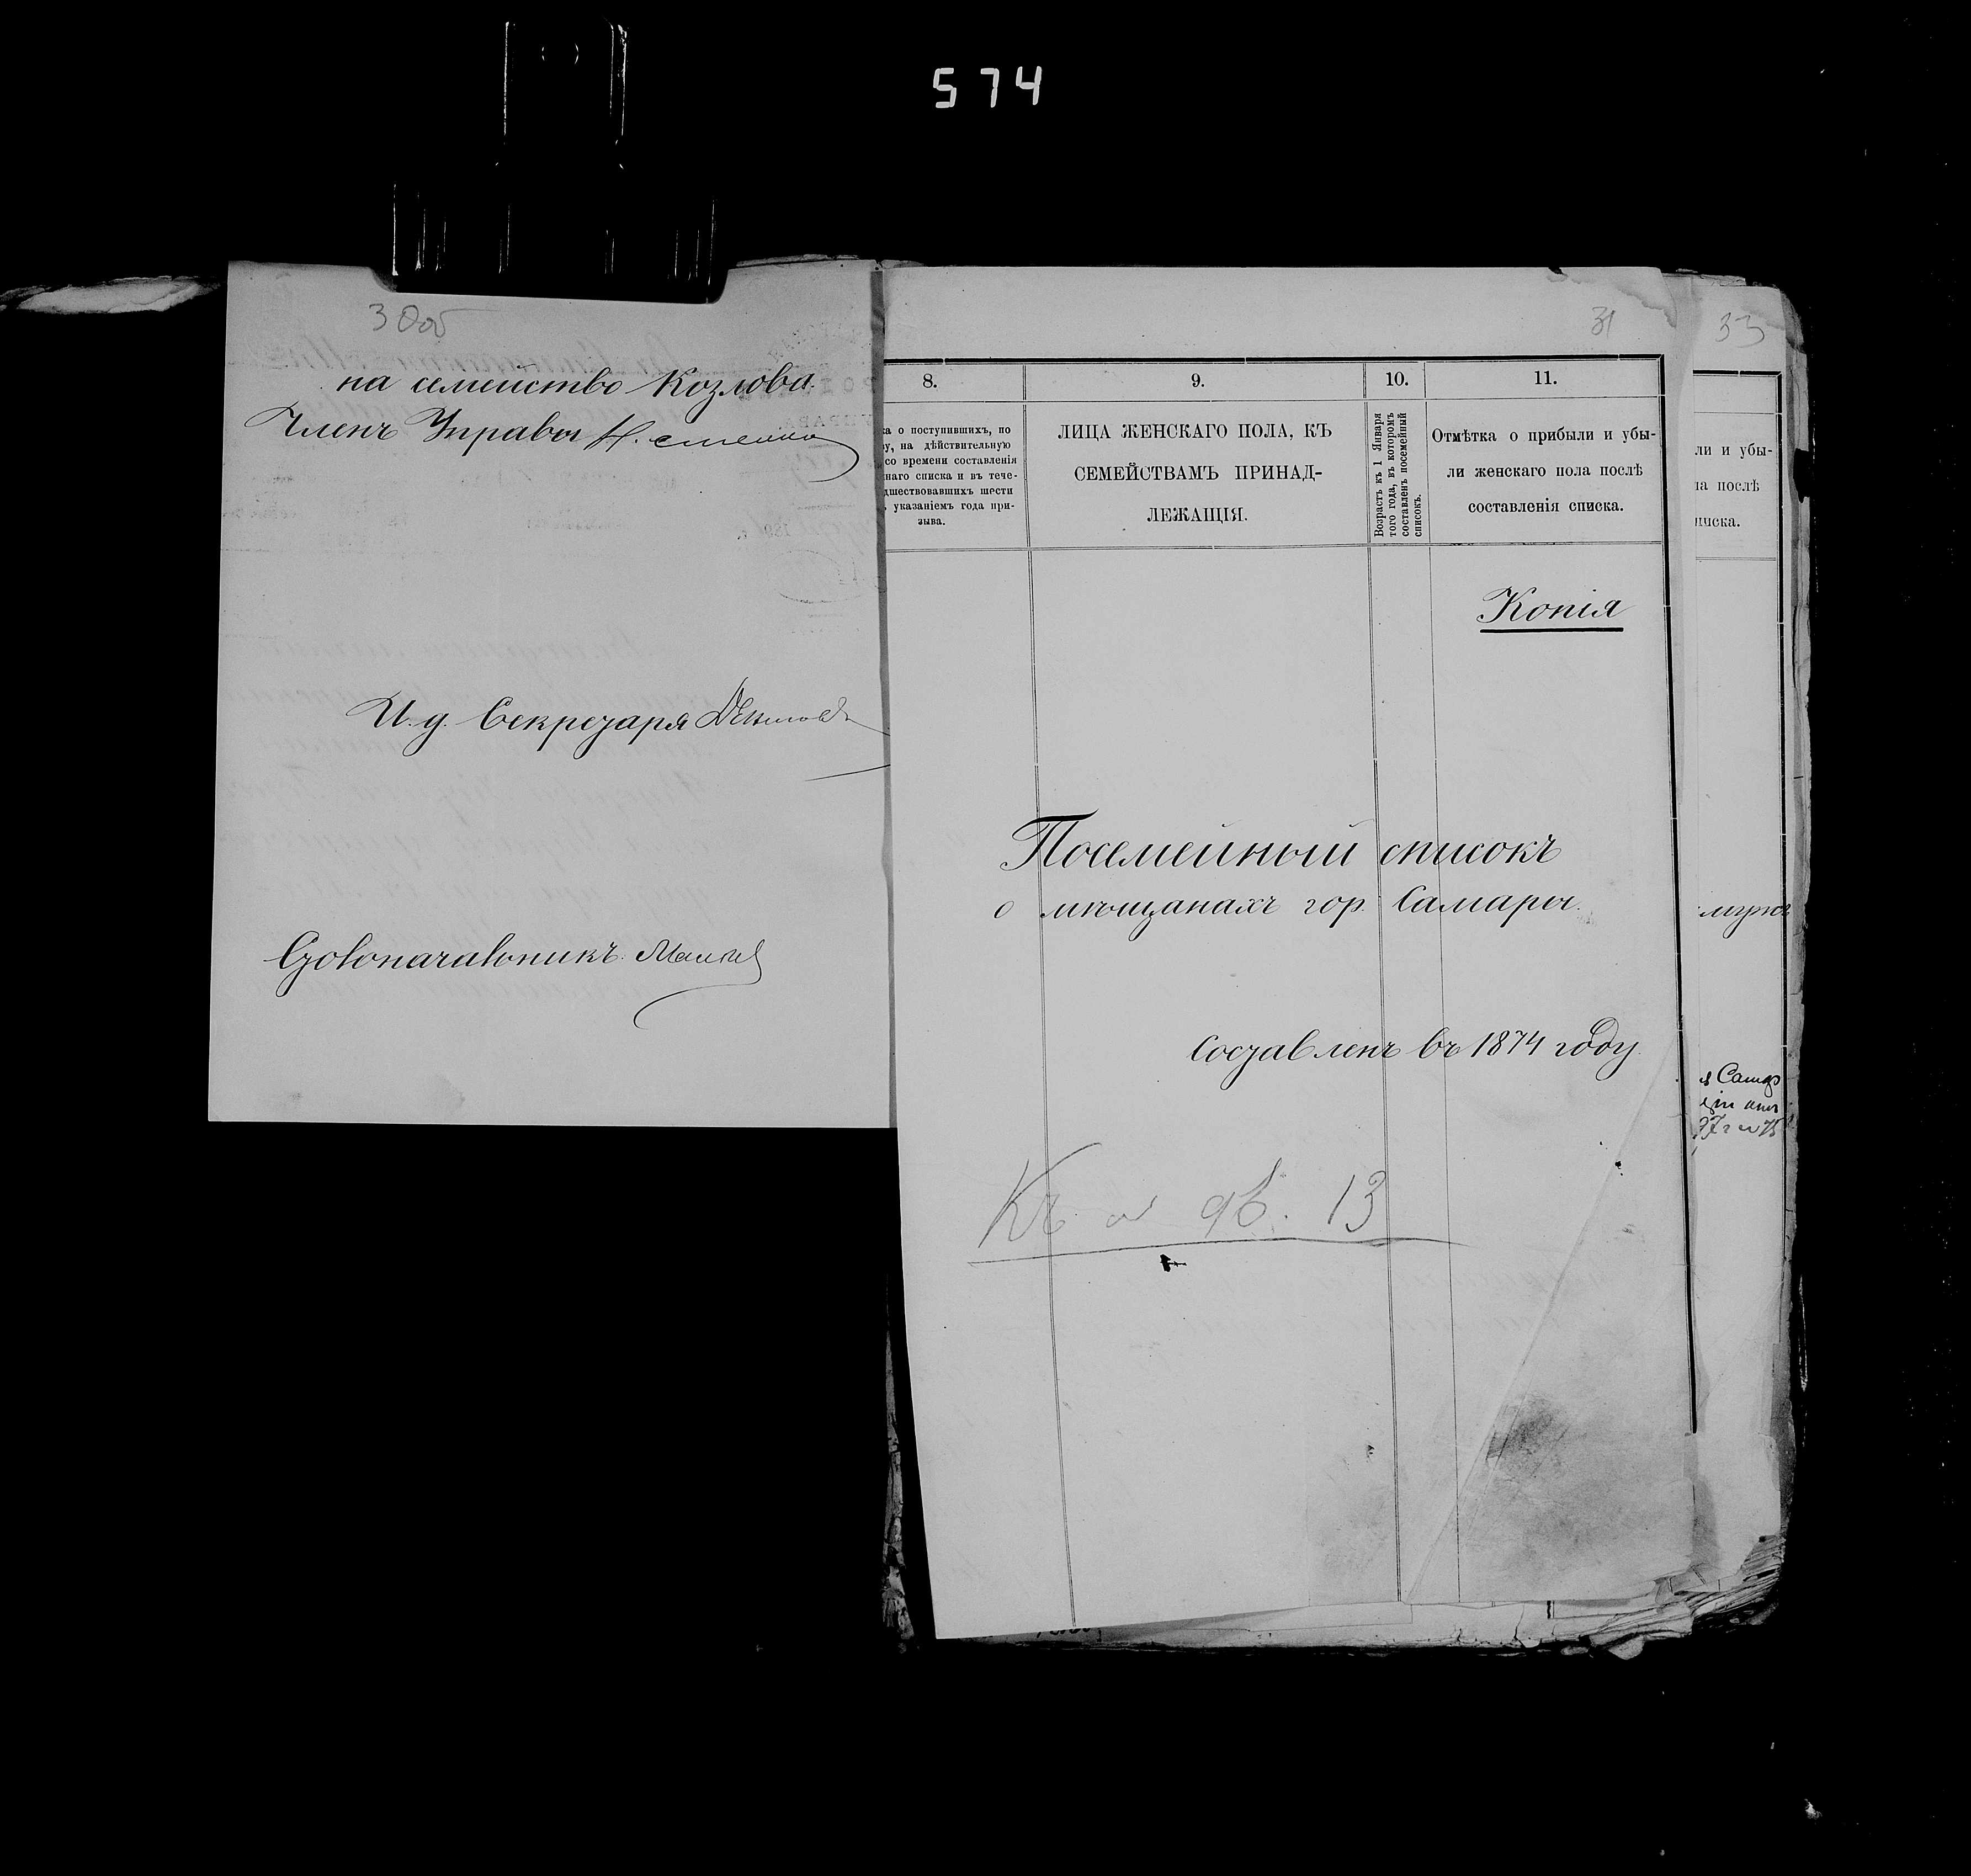 574
30об
на семейство Козлова.
Членъ Управы
И. д. Секретаря
Столоначальникъ
31
8.
9.
10.
11.
а о поступившихъ, по
у, на дѣйствительную
со времени составленія
наго списка и въ тече-
дшествовавшихъ шести
указаніемъ года при-
зыва.
ЛИЦА ЖЕНСКАГО ПОЛА, КЪ
СЕМЕЙСТВАМЪ ПРИНАД-
ЛЕЖАЩІЯ.
Возрастъ къ 1 Января
того года, въ которомъ
составленъ посемейный
списокъ.
Отмѣтка о прибыли и убы-
ли женскаго пола послѣ
составленія списка.
Копія
Посемейный списокъ
о мѣщанахъ гор. Самары.
Составленъ въ 1874 году.
Къ 13
33
ли и убы-
а послѣ
писка.